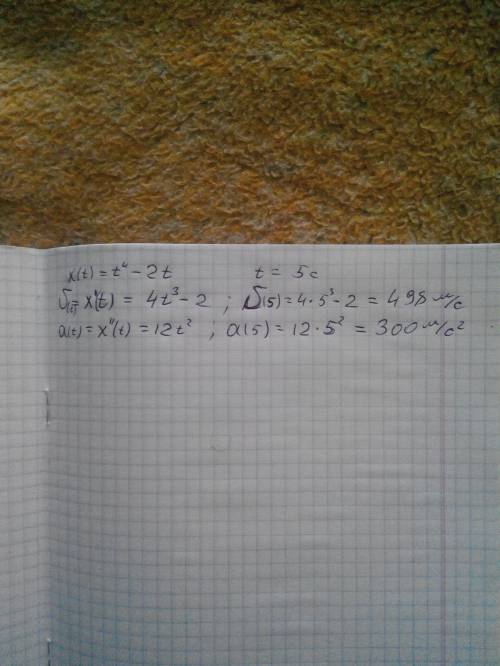 x(t) = t⁴ - 2t t = 5c
υ(t) = x'(t) = 4t³ - 2 ; υ(5) = 4·5³ - 2 = 498 м/с
a(t) = x''(t) = 12t² ; a(5) = 12·5² = 300 м/с²